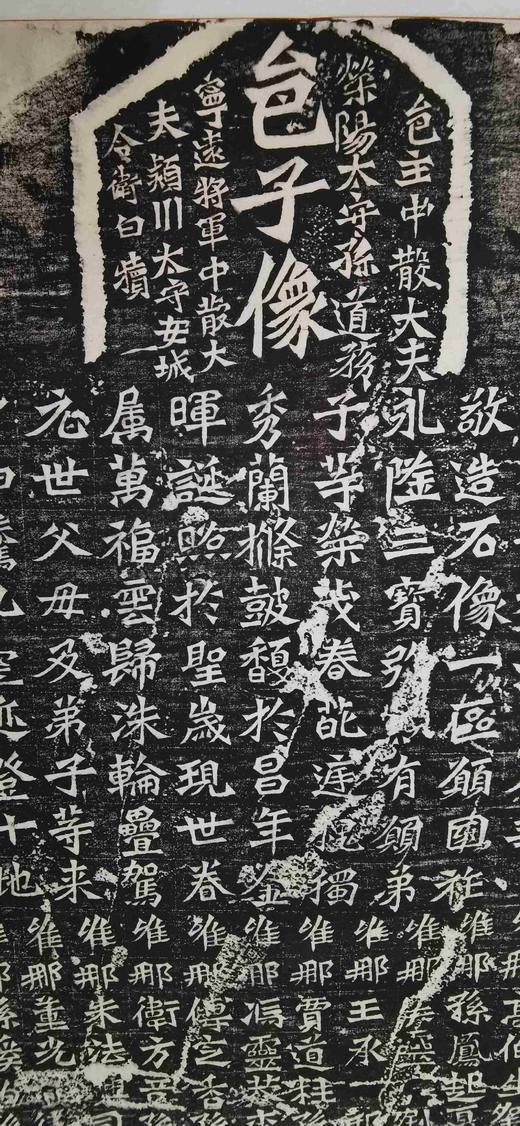 邑主中散大夫
榮陽太守孫道務
邑子像
寧遠將軍中散大
夫潁川太守安城
令衛白犢
敬造石像一區願國祚
永隆三寶弥顯有願弟
子等榮茂春葩庭槐獨
秀蘭條鼓馥於昌年金
暉誕照於聖歲現世眷
属萬福雲歸洙輪疊駕
元世父母及弟子等来
騰九空迹登十地
維那高伯生
維那孫鳳起
維那
維那王承
維那賈道
維那馮靈
維那傅定香
維那衛方意
維那朱法
維那董光
維那孫